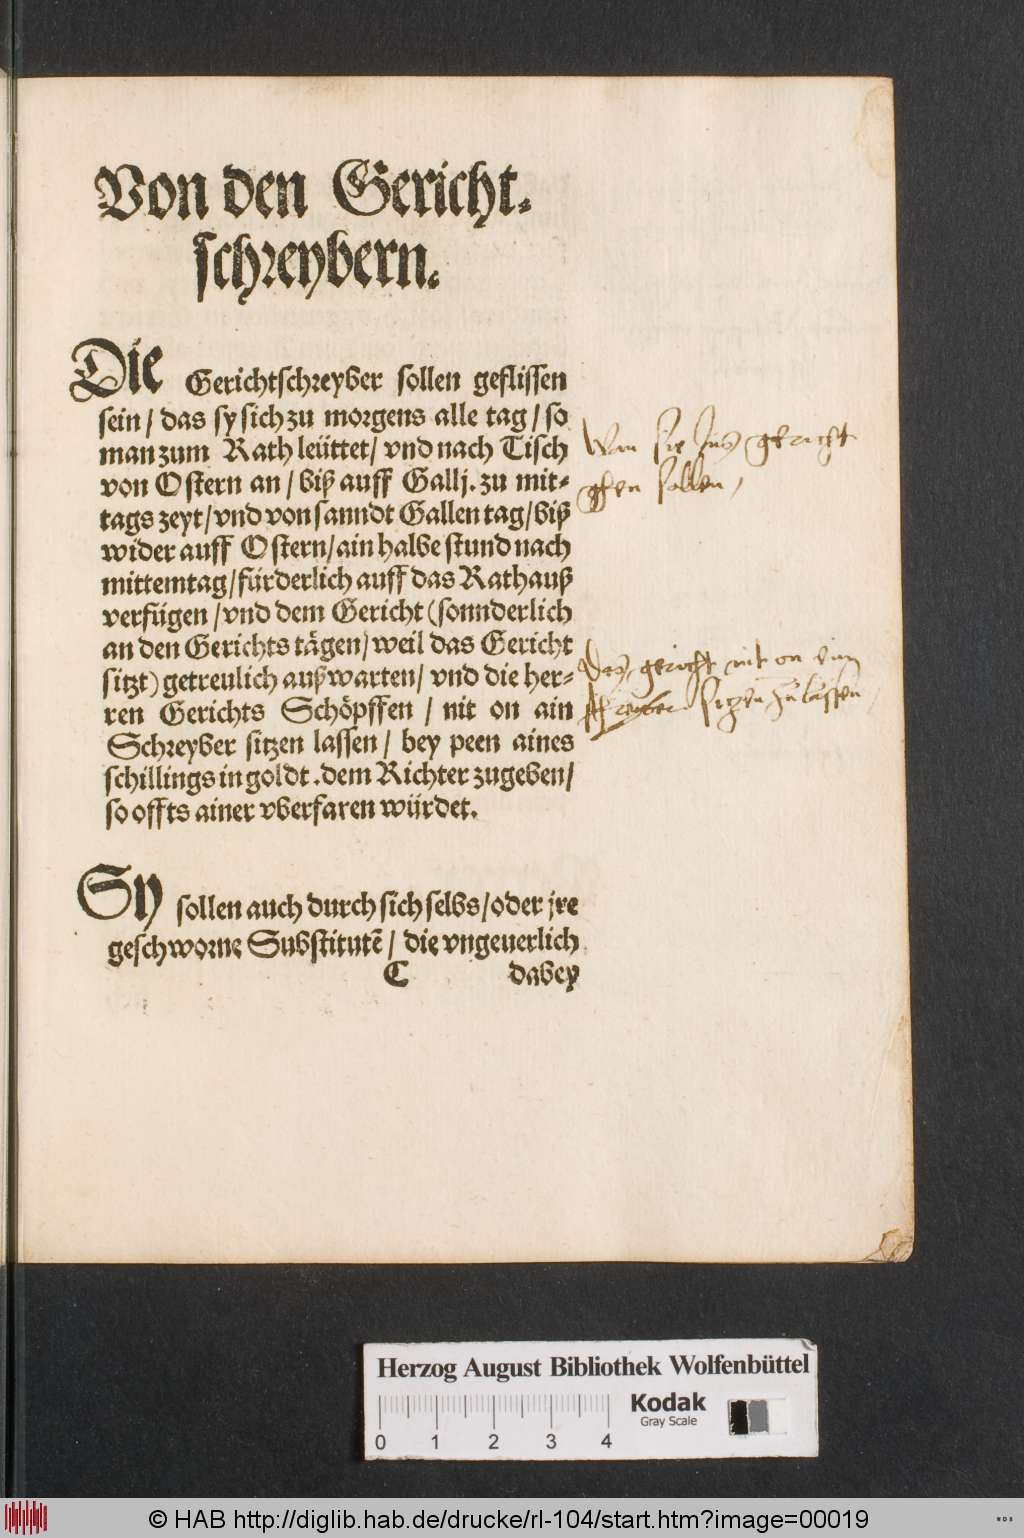 Von den Gericht⸗
schreybern.
Die Gerichtschreyber sollen geflissen
sein / das sy sich zu morgens alle tag / so
man zum Rath leüttet / vnd nach Tisch
von Ostern an / biß auff Gallj. zu mit⸗
tags zeyt / vnd von sanndt Gallen tag / biß
wider auff Ostern / ain halbe stund nach
mittemtag / fürderlich auff das Rathauß
verfügen / vnd dem Gericht (sonnderlich
an den Gerichts tägen / weil das Gericht
sitzt) getreulich außwarten / vnd die her⸗
ren Gerichts Schöpffen / nit on ain
Schreyber sitzen lassen / bey peen aines
schillings in goldt. dem Richter zugeben /
so offts ainer vberfaren würdet.
Wan sie Ins gericht
ghen sollen,
Das gericht nit on ein
schreyber sitzen zu lassen,
Sy sollen auch durch sich selbs / oder jre
geschworne Substitutẽ / die vngeuerlich
C dabey
Herzog August Bibliothek Wolfenbüttel
Kodak
Gray Scale
0 1 2 3 4
© HAB http://diglib.hab.de/drucke/rl-104/start.htm?image=00019